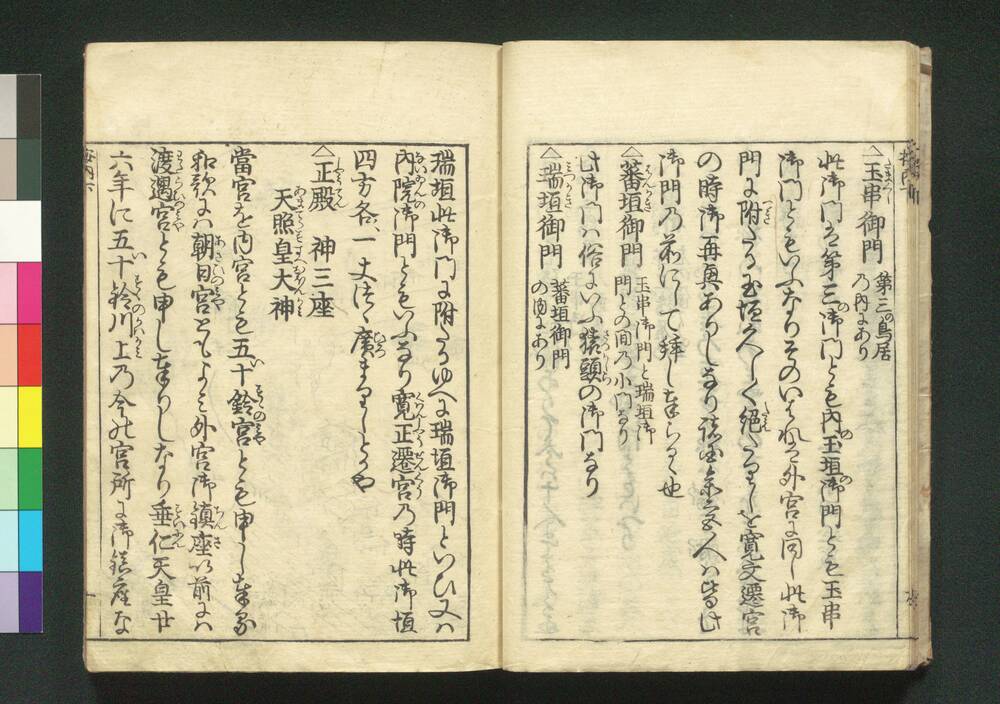 △玉串御門 第三の鳥居
の内にあり
此御門を第三の御門とも内玉垣の御門とも玉串
御門ともいふなりそのいはれは外宮に同し此御
門に附たる玉垣久しく絶たりしを寛文遷宮
の時御再興ありしなり諸国参宮人は皆此
御門の前にして拝し奉らるゝ也
△蕃垣御門 玉串御門と瑞垣御
門との間の小門なり
此御門は俗にいふ猿頭の御門なり
△瑞垣御門 蕃垣御門
の内にあり
瑞垣此御門に附たるゆへに瑞垣御門といひ又は
内院御門ともいふなり寛正遷宮の時此御垣
四方各一丈つゝ廣まりしとかや
△正殿 神三座
天照皇大神
當宮を内宮とも五十鈴宮とも申し奉る
和歌には朝日宮ともよミ外宮御鎮座以前には
渡遇宮とも申し奉りしなり垂仁天皇廿
六年に五十鈴川上の今の宮所に御鎮座な